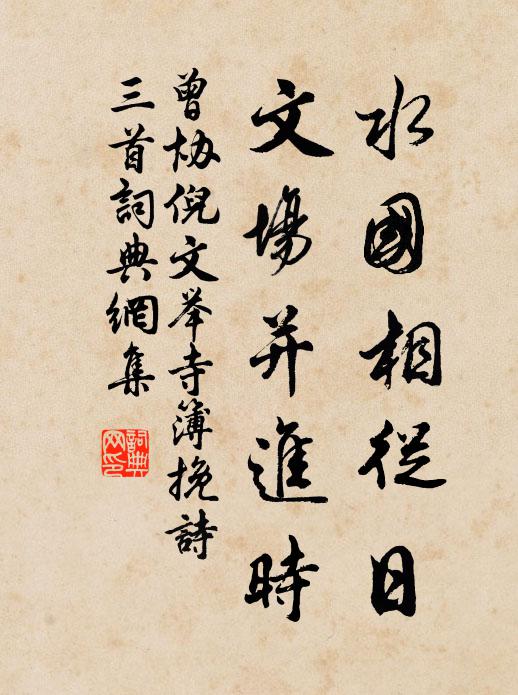 水國相從日
文場并進時
曾协倪文举寺簿挽詩
三首詞典網集
詞典網印